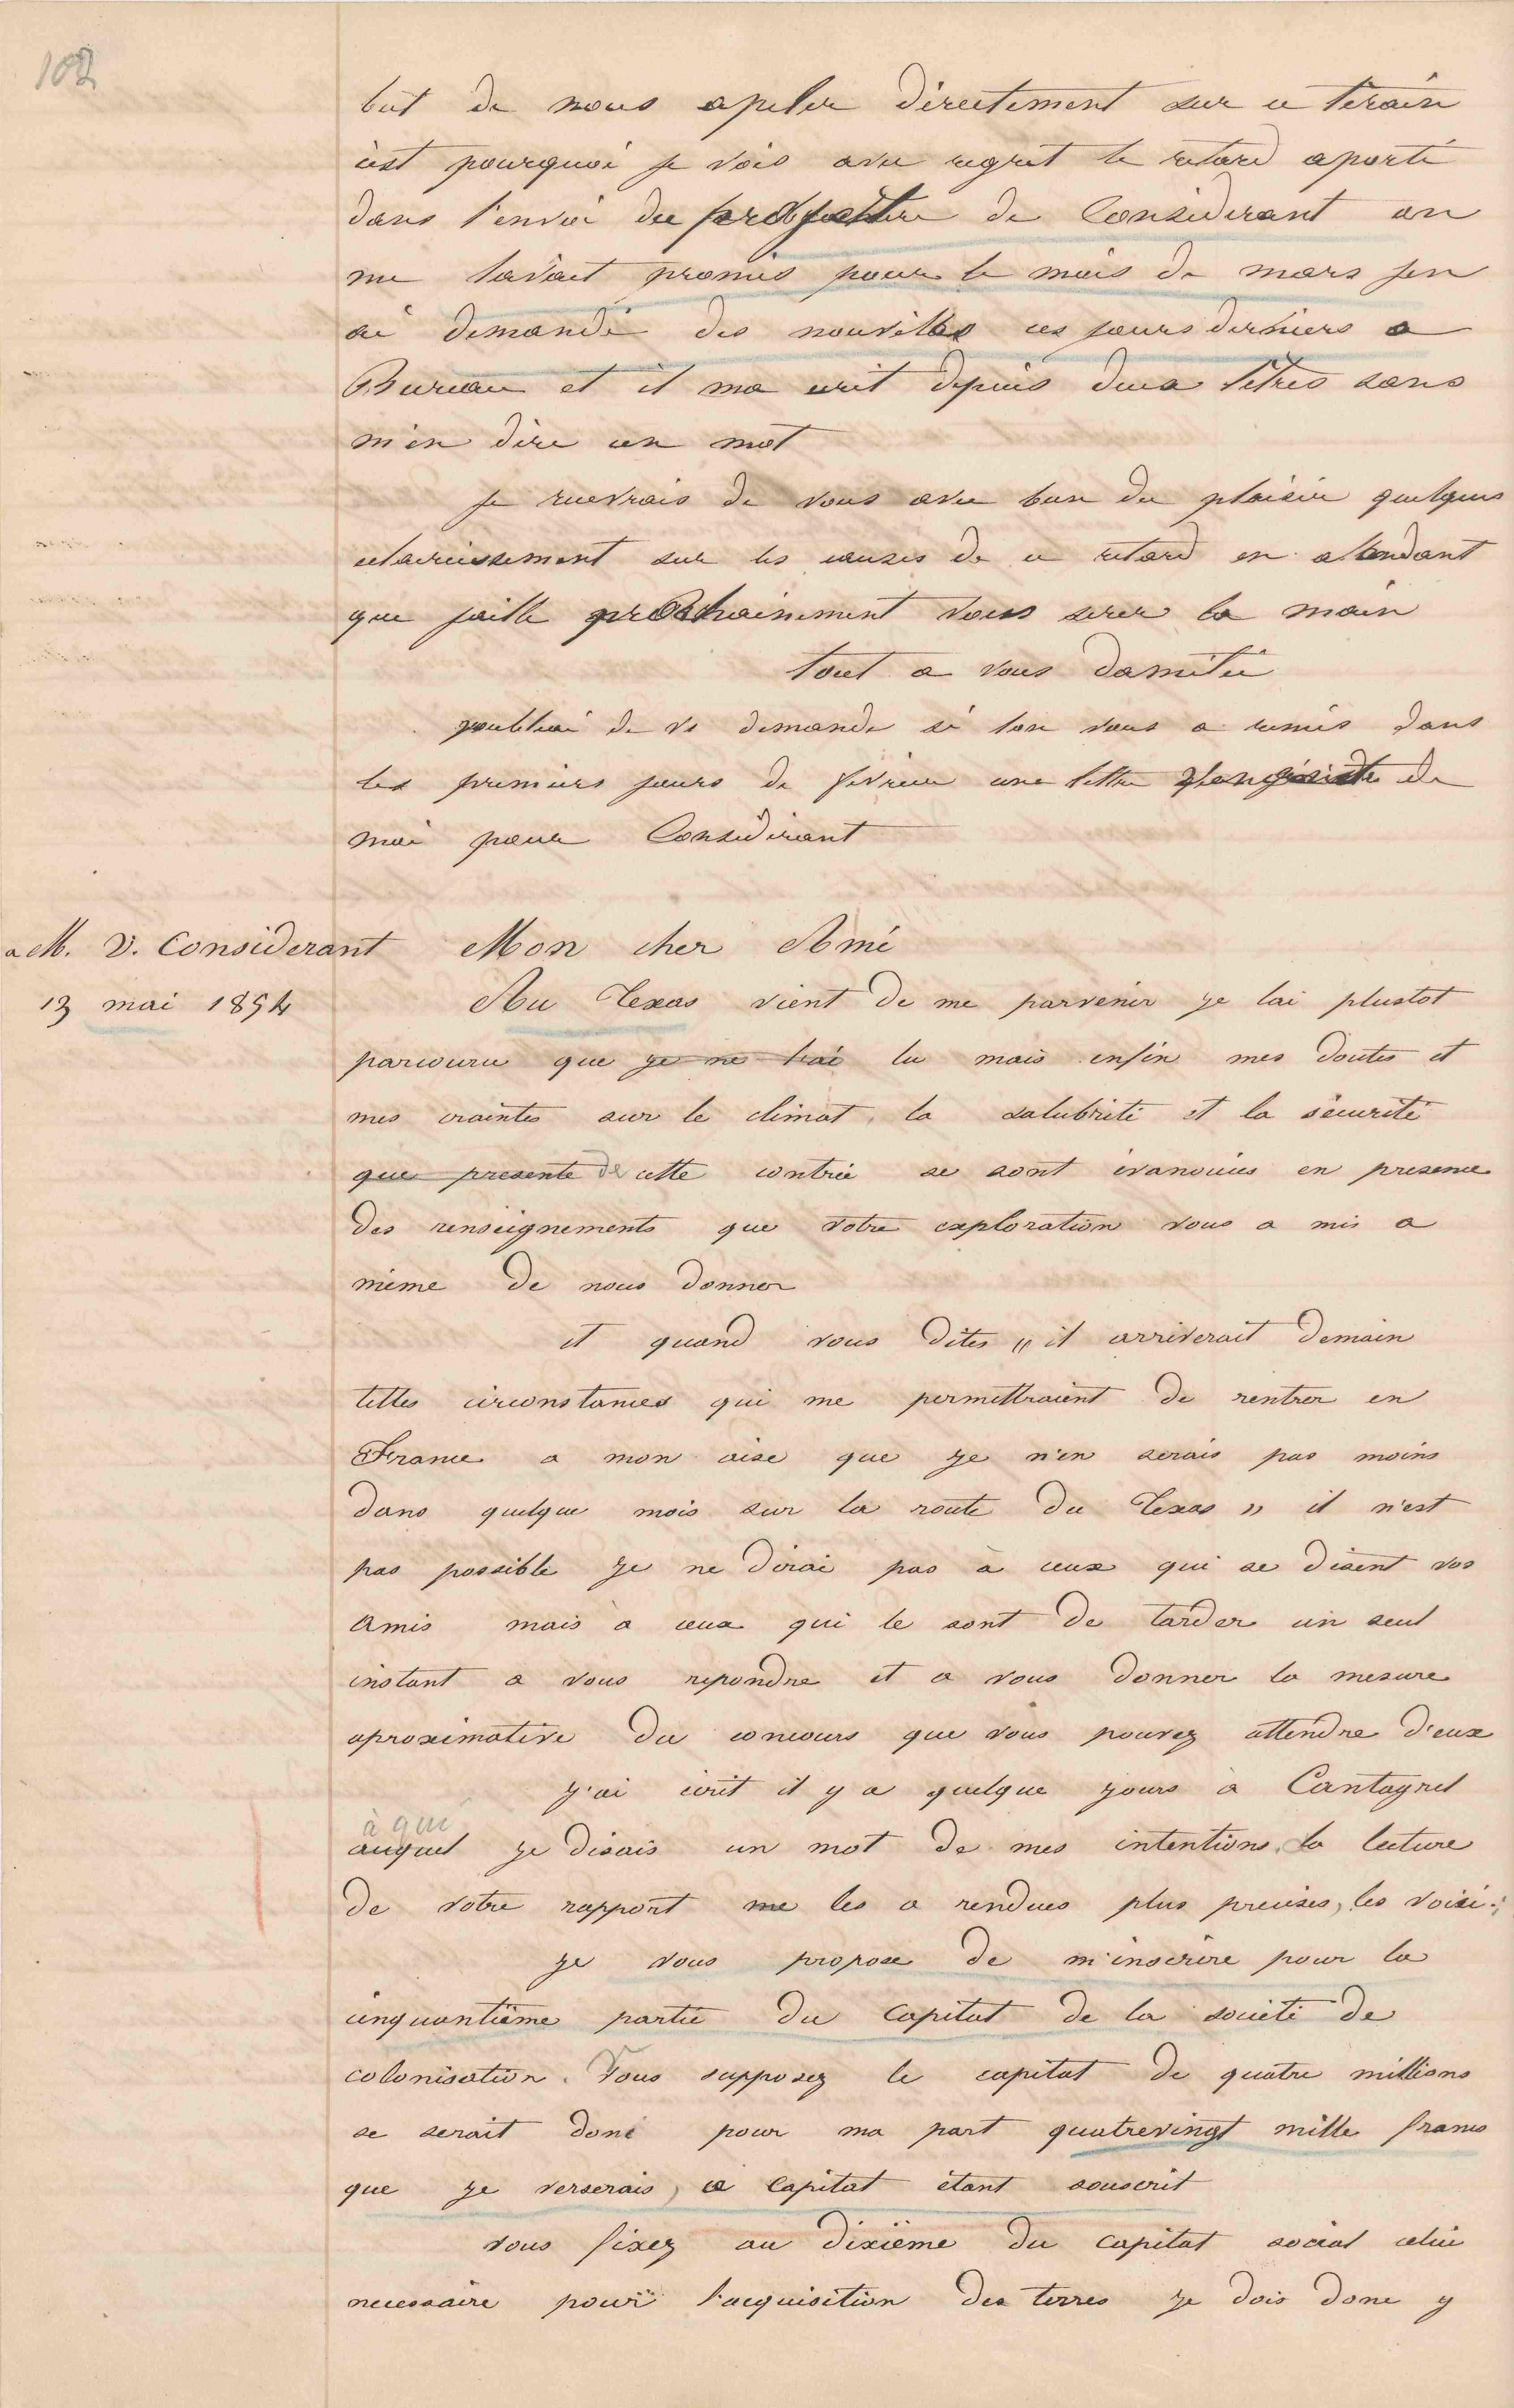 102
but de nous apeler directement sur ce terain
cest pourquoi je vois avec regret le retard aporté
dans l'envoi du de Considerant on
me lavait promis pour le mois de mars jen
ai demandé des nouvelles ces jours derniers a
Bureau et il ma ecrit depuis deux letres sans
m'en dire un mot
je recevrais de vous avec bien du plaisir quelques
eclaircissement sur les causes de ce retard en atendant
que jaille prochainement vous serer la main
tout a vous damitié
joubliai de vs demande si lon vous a remis dans
les premiers jours de fevrier une lettre de
moi pour Considerant
a M. V. Considerant
13 mai 1854
Mon cher Ami
Au Texas vient de me parvenir je lai plustot
parcouru que je ne lai lu mais enfin mes doutes et
mes craintes sur le climat, la salubrité et la sécurité
que presente de cette contrée se sont évanouies en presence
des renseignements que votre exploration vous a mis a
même de nous donner
et quand vous dites " il arriverait demain
telles circonstances qui me permettraient de rentrer en
France a mon aise que je n'en serais pas moins
dans quelque mois sur la route du Texas " il n'est
pas possible je ne dirai pas à ceux qui se disent vos
amis mais à ceux qui le sont de tarder un seul
instant a vous repondre et a vous donner la mesure
aproximative du concours que vous pouvez attendre d'eux
j'ai ecrit il y a quelque jours a Cantagrel
à qui
auquel je disais un mot de mes intentions, la lecture
de votre rapport me les a rendues plus precises, les voisi:
je vous propose de m'inscrire pour la
cinquantième partie du capital de la société de
colonisation. Vous supposez le capital de quatre millions
se serait donc pour ma part quatrevingt mille francs
que je verserais, ce capital étant souscrit
vous fixez au dixième du capital social celui
necessaire pour l'acquisition des terres je dois donc y